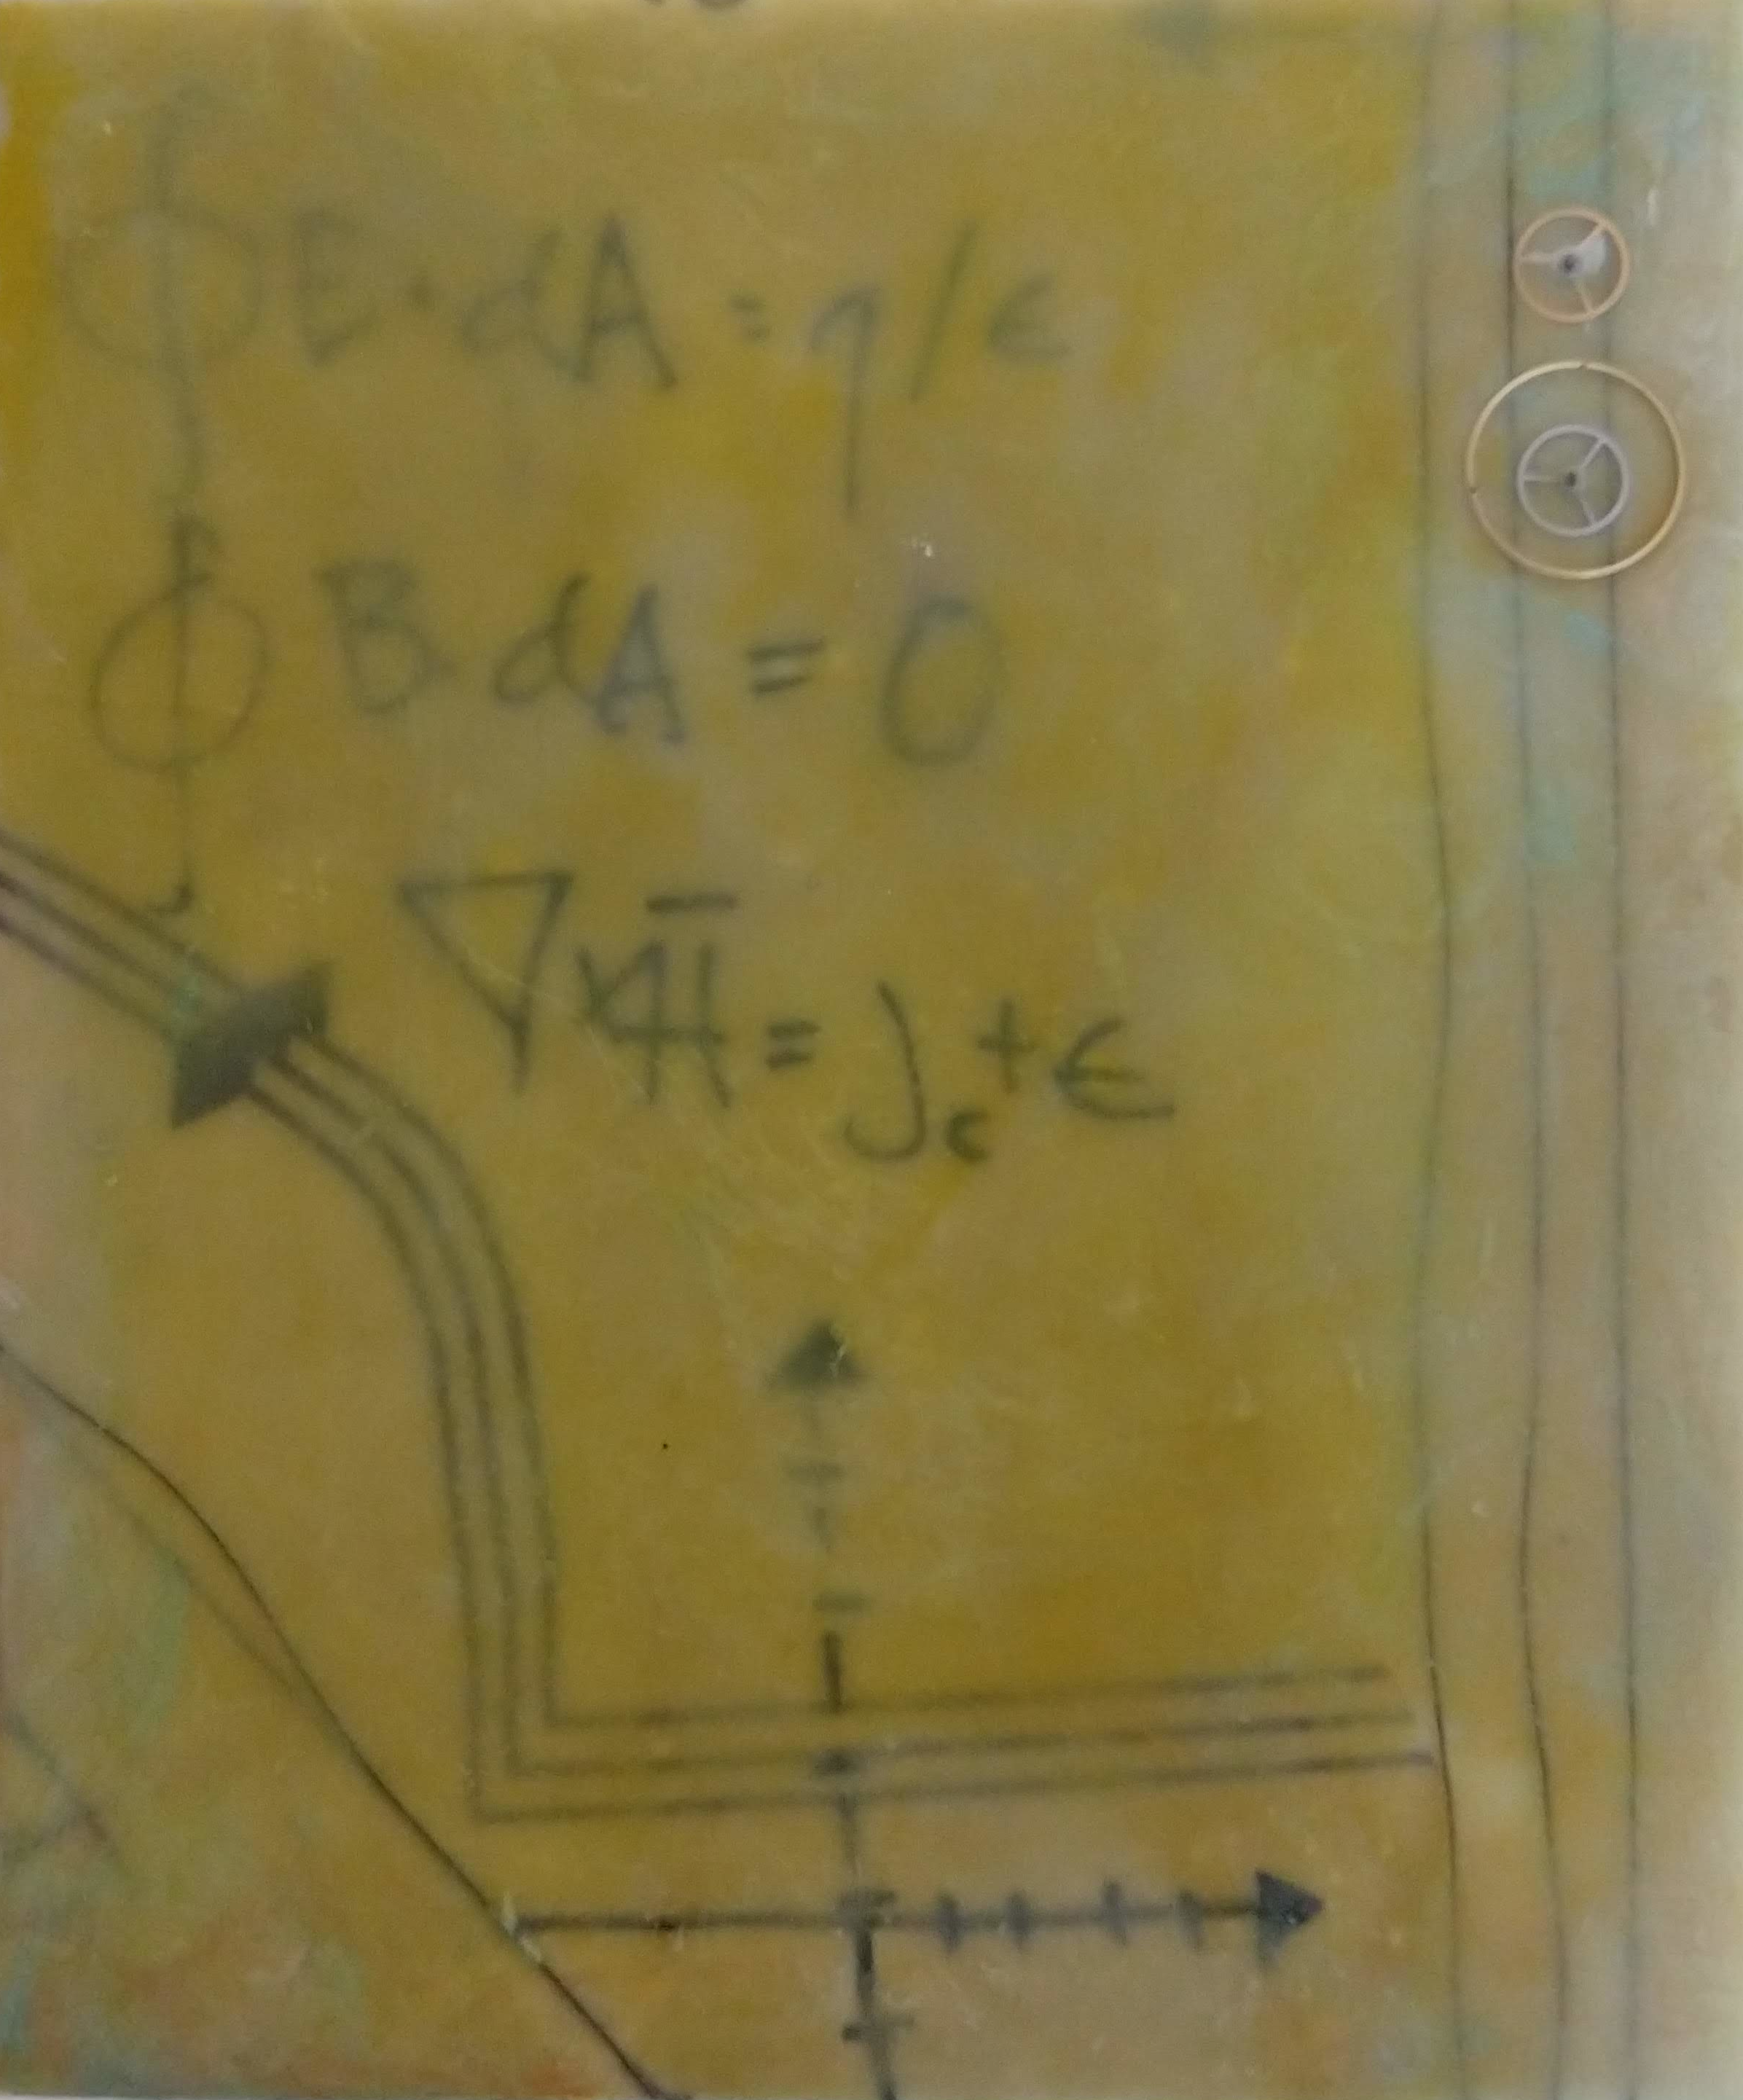 ∮E·dA = q/ϵ
∮B dA = 0
∇xH̅ = Jc + ϵ